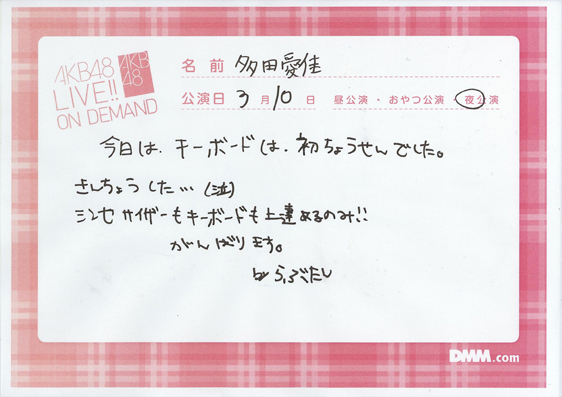 AKB48
LIVE!!
ON DEMAND
AKB
48
名前 多田愛佳
公演日 3月10日 昼公演・おやつ公演・夜公演
今日は、キーボードは、初ちょうせんでした。
きんちょうした…(泣)
シンセサイザーもキーボードも上達めるのみ!!
がんばります。
by らぶたん
DMM.com